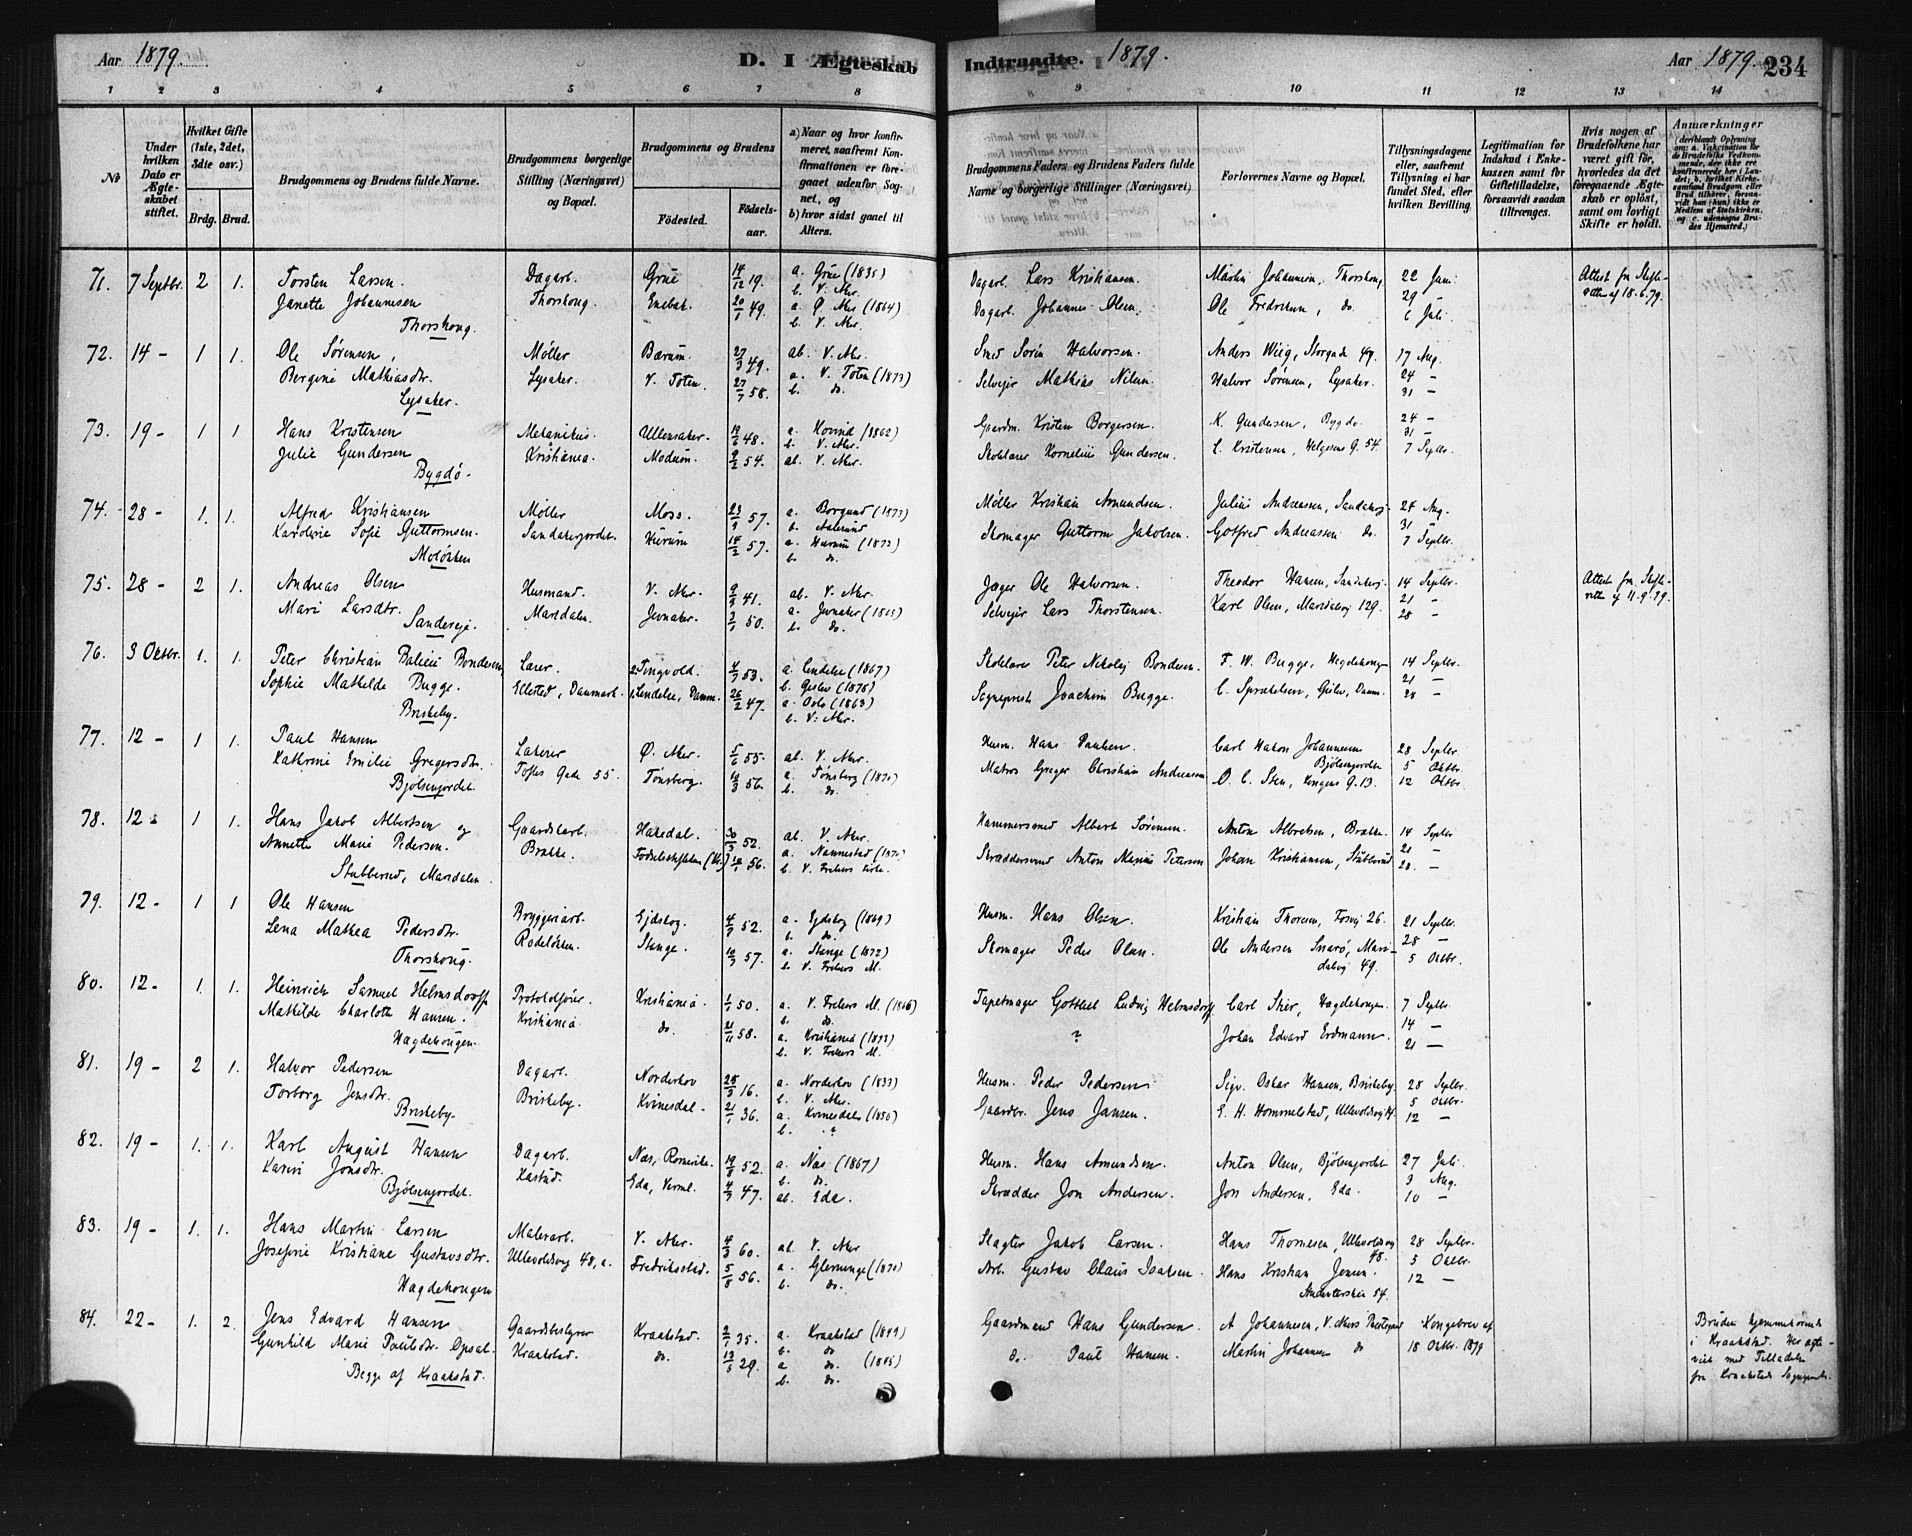 Aar 1879. D. I Ægteskab
Indtraadte. 1879. Aar 1879. 234
1 2 3 4 5 6 7 8
8 9 10 11 12 13 14
No
Under hvilken Dato er Ægteskabet stiftet.
Hvilket Gifte (1ste, 2det, 3die osv.)
Brdg. Brud.
Brudgommens og Brudens fulde Navne.
Brudgommens borgerlige Stilling (Næringsvei) og Bopæl.
Brudgommens og Brudens
Fødested. Fødselsaar.
a) Naar og hvor konfirmeret, saafremt Konfirmationen er foregaaet udenfor Sognet, og
b) hvor sidst gaaet til Alters.
Brudgommens Faders og Brudens Faders fulde Navne og borgerlige Stillinger (Næringsvei)
Forlovernes Navne og Bopæl.
Tillysningsdagene eller, saafremt Tillysning ei har fundet Sted, efter hvilken Bevilling.
Legitimation for Indskud i Enkekassen samt for Giftetilladelse, forsaavidt saadan tiltrænges.
Hvis nogen af Brudefolkene har været gift før, hvorledes da det foregaaende Ægteskab er opløst, samt om lovligt Skifte er holdt.
Anmærkninger
71. 7 Septbr. 2 1. Torsten Larsen Dagarb. Grue 14/12 19. a. Grue (1835) Dagarb. Lars Kristiansen. Martin Johannesen, Thorshoug 22 Juni Attest fra Skifteretten af 18.6.79.
Janette Johannesen Thorshoug. Enebak. 20/1 49. b. V. Aker. a. Ø. Aker (1864) Dagarb. Johannes Olsen. Ole Fredriksen, do. 29 –
Thorshoug. b. V. Aker. 6 Juli
72. 14 – 1 1. Ole Sørensen, Møller Bærum. 27/3 49. ab. V. Aker. Smed Sørin Halvorsen. Anders Wiig, Storgade 49. 17 Aug.
Bergine Mathiasdtr. Lysaker. V. Toten. 27/7 58. a. V. Toten (1873) Selveier Mathias Nilsen. Halvor Sørensen, Lysaker. 24 –
Lysaker. b. do. 31 –
73. 19 – 1 1 Hans Kristensen Mekanikus. Ullensaker. 19/6 48. a. Hovind (1862) Gaardm. Kristen Borgersen. K. Gundersen, Bygdø. 24 –
b. V. Aker. 31 –
Julie Gundersen Kristiania. Modum. 9/2 54. ab. V. Aker. Skolelærer Kornelius Gundersen. C. Kristensen, Helgesens G. 54. 7 Septbr.
Bygdø.
74. 28 – 1. 1. Alfred Kristiansen Møller Moss. 23/9 57. a. Borgund (1873) Møller Kristian Amundsen. Julius Andreassen, Sandakerv. 24 Aug.
b. Aalesund 31 –
Karoline Sofie Guttormsen. Sandakergjordet. Hurum 14/2 57. a. Hurum (1872) Skomager Guttorm Jakobsen. Gotfred Andreassen do. 7 Septbr.
Moløkken b. do.
75. 28 – 2 1. Andreas Olsen Husmand. V. Aker. 9/9 41. ab. V. Aker. Jæger Ole Halvorsen. Theodor Hansen, Sandakerv. 14 Septbr. Attest fra Skifteretten af 11.9.79.
Mari Larsdtr. Maridalen. Jevnaker. 3/1 50. a. Jevnaker (1865) Selveier Lars Thorstensen. Karl Olsen, Maridalsv 129. 21 –
Sandereie. b. do. 28 –
76. 3 Oktbr. 1. 1. Peter Christian Balieu Bondesen, Lærer. Tingvold. 4/7 53. a. Lendelse (1867) Skolelærer Peter Nikolej Bondesen. F. W. Bugge, Hegdehougen 14 Septbr.
b. Geslev (1878) 21 –
Sophie Mathilde Bugge. Ellested, Danmark. Lendelse, Danm. 26/2 47. a. Oslo (1863) Sogneprest Joachim Bugge. C. Sprækelsen, Geslev, Danm. 28 –
Briskeby. b. V. Aker.
77. 12 – 1 1. Paul Hansen Lakerer Ø. Aker. 5/6 55. ab. V. Aker. Husm. Hans Paulsen. Carl Hakon Johannesen 28 Septbr.
Bjølsengordet 5 Oktbr.
Kathrine Emilie Gregersdtr. Toftes Gade 55. Tønsberg. 10/3 56. a. Tønsberg (1870) Matros Greger Christian Andreasen O. C. Sten, Kongens G. 13. 12 Oktbr.
Bjølsengordet. b. do.
78. 12 – 1 1. Hans Jakob Albertsen og Gaardsarb. Hakedal. 30/3 52. ab. V. Aker. Hammersmed Albert Sørensen. Anton Albretsen, Brække. 14 Septbr
Annette Marie Pedersen. Brække. Fødselsstiftelsen (Kr.) 56. a. Nannestad (1870) Skræddersvend Anton Marius Petersen Johan Kristiansen, Stubberud 21 –
Stubberud, Maridalen. b. V. Frelsers Kirke. 28. –
79. 12 – 1 1 Ole Hansen Bryggeriarb. Ejdskog. 4/7 52. a. Ejdskog (1869) Husm. Hans Olsen. Kristian Thoresen, Fosvej 26. 21 Septbr.
b. do. 28 –
Lena Mathea Pedersdtr. Rodeløkken. Stange. 10/3 57. a. Stange (1872) Skomager Peder Olsen. Ole Andersen Snarø, Maridalsvej 49. 5 Oktbr.
Thorshoug. b. V. Frelsers M.
80. 12 – 1. 1. Heinrich Samuel Helmsdorff Protokolfører. Kristiania. 1/1 50. a. V. Frelsers M. (1866) Tapetmager Gottlieb Ludvig Helmsdorff. Carl Sker, Hægdehougen. 7 Septbr.
b. do. 14 –
Mathilde Charlotte Hansen. Kristiania do. 21/11 58. a. Kristiania (1873) ? Johan Edvard Erdmann. 21 –
Hægdehougen. b. V. Frelsers M.
81. 19 – 2 1. Halvor Pedersen Dagarb. Norderhov 25/3 16. a. Norderhov (1833) Husm. Peder Pedersen. Sigv. Oskar Hansen, Briskeby. 28 Septbr.
b. V. Aker. 5 Oktbr.
Torborg Jensdtr. Briskeby. Kvinesdal. 21/1 36. a. Kvinesdal (1850) Gaardbr. Jens Jansen. E. H. Hommelstad, Ullevoldsvej 12 –
Briskeby. b. ?
82. 19 – 1. 1. Karl August Hansen Dagarb. Næs, Romerike. 19/8 52. a. Næs (1867) Husm. Hans Amundsen. Anton Olsen, Bjølsengordet 27 Juli
b. do. 3 Aug.
Karin Jonsdtr. Kastud. Eda, Verml. 4/9 47. ab. Eda. Skrædder Jon Andersen. Jon Andersen, Eda. 10 –
Bjølsengordet.
83. 19 – 1. 1. Hans Martin Larsen Malerarb. V. Aker. 4/3 60. ab. V. Aker Slagter Jakob Larsen. Hans Thomesen, Ullevoldsvej 48. 28 Septbr.
Josefine Kristiane Gustavsdtr. Ullevoldsvej 48, a. Fredriksstad. 5/8 56. a. Glemminge (1870) Arb. Gustav Claus Isaksen. Hans Kristian Jensen. 5 Oktbr.
Hægdehougen b. do. 54. 12 –
84. 22 – 1. 2. Jens Edvard Hansen Gaardbestyrer Kraakstad. 2/1 35. a. Kraakstad (1849) Gaardmand Hans Gundersen. A Johannesen, V. Akers Prestegaard Kongebrev af Bruden hjemmehørende
b. do
Gunhild Marie Paulsdtr. Opsal. Kraakstad. do. 13/5 29. a do. (1845) do. Paul Hansen. Martin Johannesen do 18 Oktbr. 1879 i Kraakstad. Her ægteviet med Tilladelse
Begge af Kraakstad. b. do. fra Kraakstads Sogneprest.